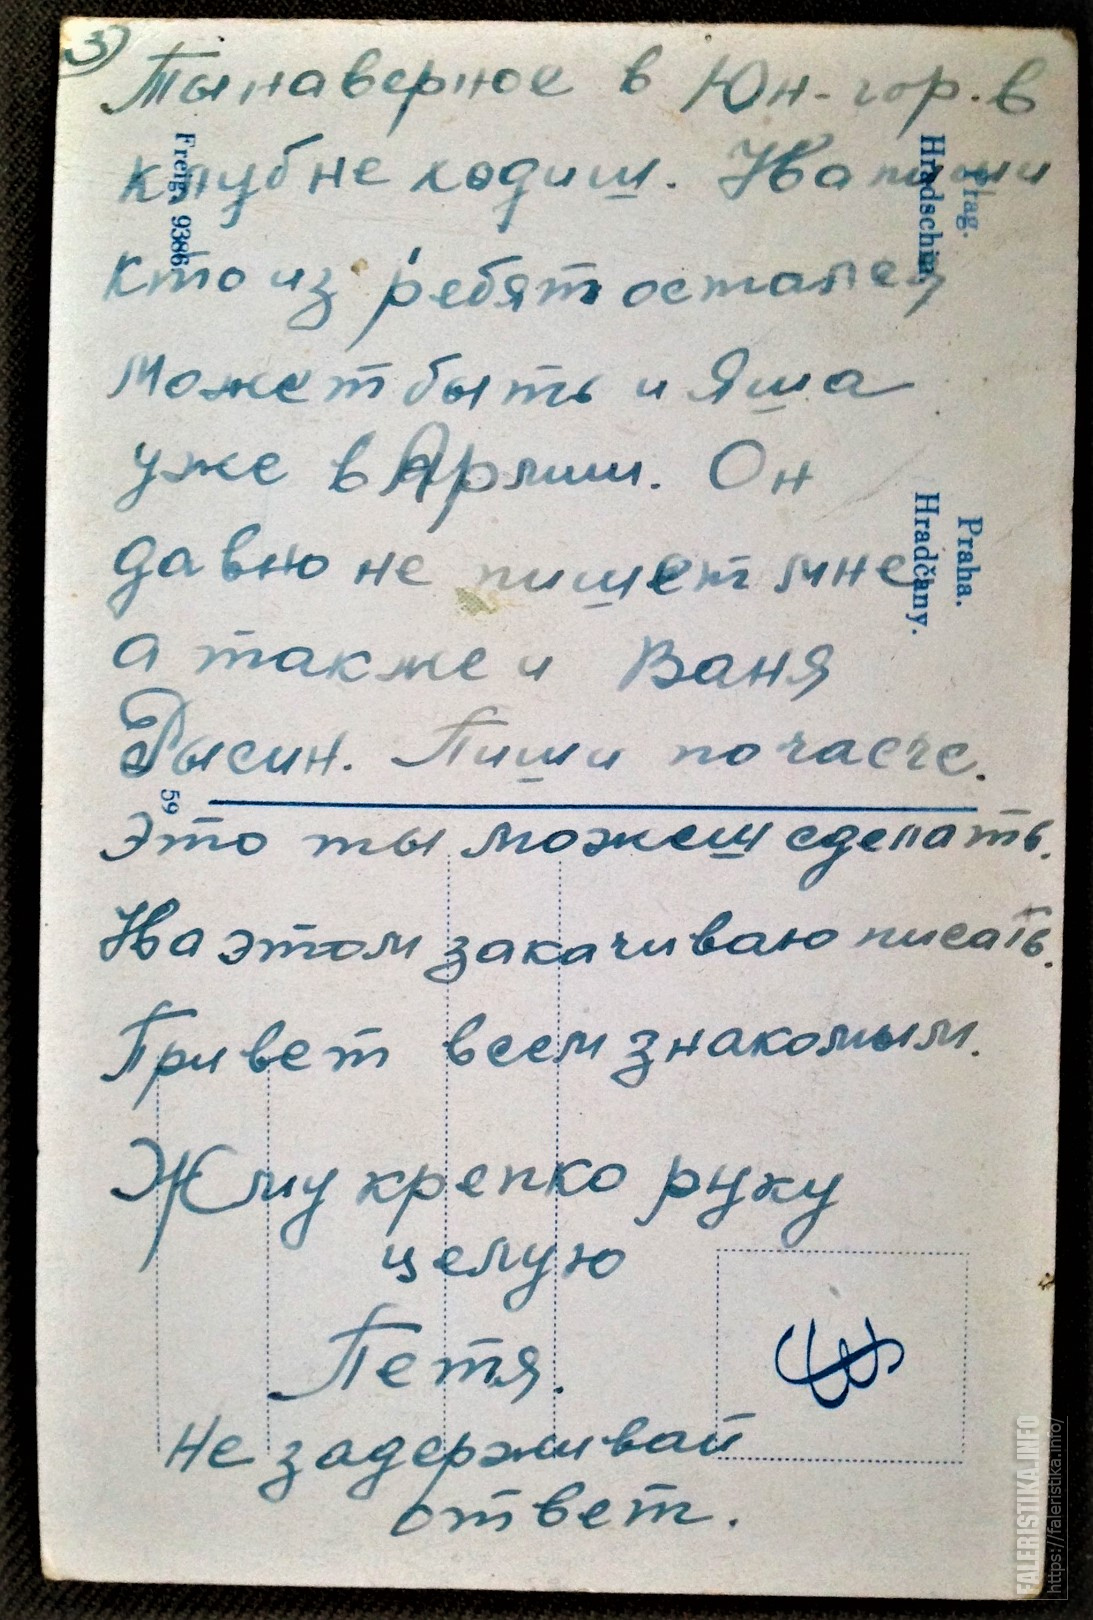 3)
Ты наверное в Юн-гор. в
клуб не ходиш. Напиши
кто из ребят остался
может быть и Яша
уже в Армии. Он
давно не пишет мне
а также и Ваня
Рысин. Пиши почасче.
Это ты можеш сделать.
На этом закачиваю писать.
Привет всем знакомым.
Жму крепко руку
целую
Петя.
Не задерживай
ответ.
Freig. 9386
59
Prag.
Hradschin.
Praha.
Hradčany.
FALERISTIKA.INFO
https://faleristika.info/